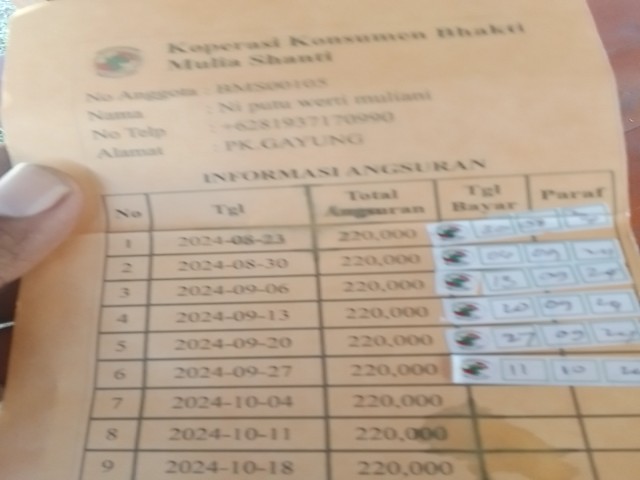 Koperasi Konsumen Bhakti
Mulia Shanti
No Anggota : BMS00105
Nama : Ni putu werti muliani
No Telp : +6281937170990
Alamat : PK.GAYUNG
INFORMASI ANGSURAN
No Tgl Total Angsuran Tgl Bayar Paraf
1 2024-08-23 220,000
2 2024-08-30 220,000 06 09
3 2024-09-06 220,000 13 09 24
4 2024-09-13 220,000 20 09 24
5 2024-09-20 220,000 27 09 24
6 2024-09-27 220,000 11 10
7 2024-10-04 220,000
8 2024-10-11 220,000
9 2024-10-18 220,000